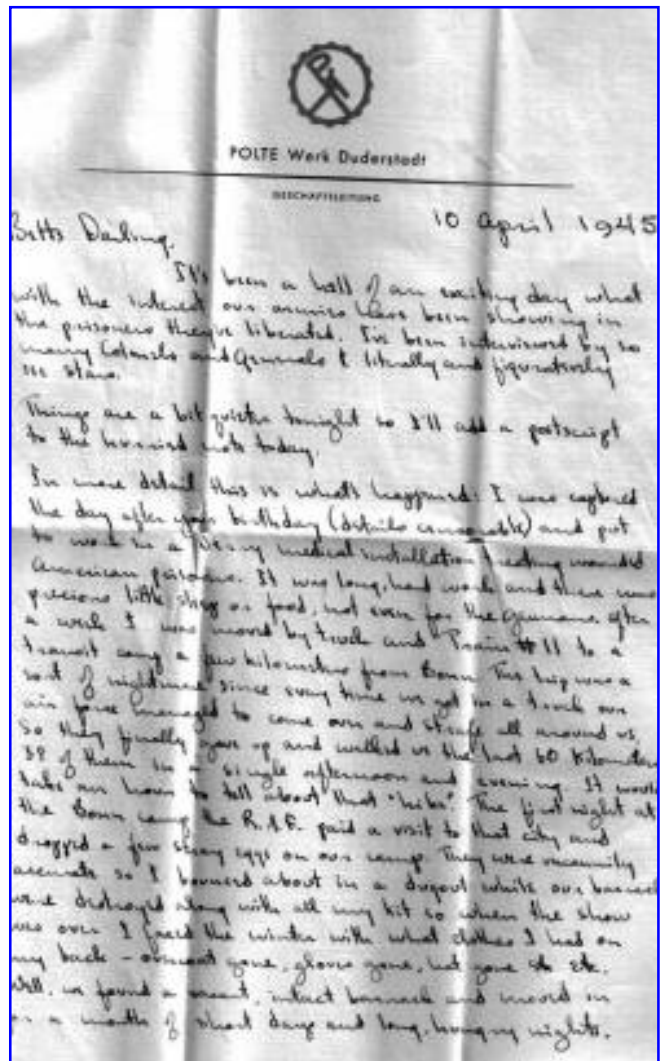 POLTE Werk Duderstadt
GESCHÄFTSLEITUNG
10 April 1945
Betts Darling,
It's been a hell of an exciting day what
with the interest our armies have been showing in
the prisoners they've liberated. I've been interviewed by so
many Colonels and Generals I literally and figuratively
see stars.
Things are a bit quieter tonight so I'll add a postscript
to the hurried note today.
In more detail this is what's happened: I was captured
the day after your birthday (details censorable) and put
to work in a Jerry medical installation treating wounded
American prisoners. It was long, hard work and there was
precious little sleep or food, not even for the Germans. After
a week I was moved by truck and "Train #11" to a
transit camp a few kilometers from Bonn. This trip was a
sort of nightmare since every time we got in a truck our
air force managed to come over and strafe all around us,
So they finally gave up and walked us the last 60 kilometers
38 of them in a single afternoon and evening. It would
take an hour to tell about that "hike". The first night at
the Bonn camp the R.A.F. paid a visit to that city and
dropped a few stray eggs on our camp. They were uncannily
accurate so I bounced about in a dugout while our barrack
were destroyed along with all my kit so when the show
was over I faced the winter with what clothes I had on
my back - overcoat gone, gloves gone, hat gone etc etc.
Well, we found a vacant, intact barrack and moved in
for a month of short days and long, hungry nights.